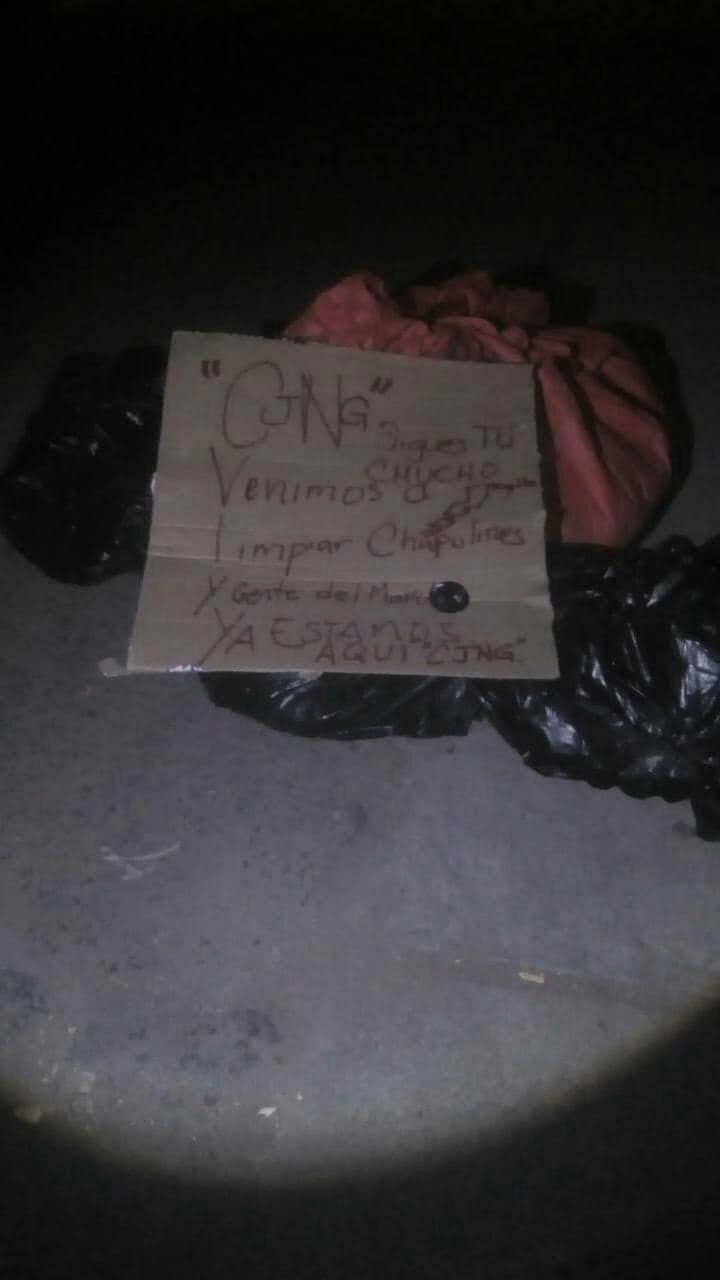 "CJNG"
Sigues TU
CHUCHO
Venimos a
limpiar Chapulines
Y Gente del
YA ESTAMOS
AQUI "CJNG"